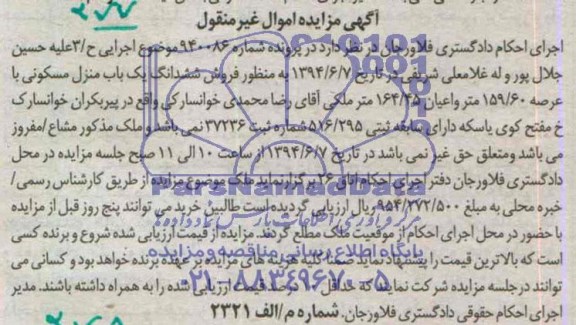 آگهی مزایده اموال غیر منقول
اجرای احکام دادگستری فلاورجان در نظر دارد در پرونده شماره ۹۴۰۰۸۶ موضوع اجرایی ح/۳علیه حسین
جلال پور و له غلامعلی شریفی در تاریخ ۱۳۹۴/۶/۷ به منظور فروش ششدانگ یک باب منزل مسکونی با
عرصه ۱۵۹/۶۰ متر واعیان ۱۶۴/۳۵ متر ملکی آقای رضا محمدی خوانسارکی واقع در پیربکران خوانسارک
خ مفتح کوی یاسکه دارای سابقه ثبتی ۵۷۶/۲۹۵ شماره ثبت ۳۷۲۳۶ نمی باشد و ملک مذکور مشاع/مفروز
می باشد ومتعلق حق غیر نمی باشد در تاریخ ۱۳۹۴/۶/۷از ساعت ۱۰ الی ۱۱ صبح جلسه مزایده در محل
دادگستری فلاورجان دفتر اجرای احکام اتاق ۲۶ برگزار نماید ملک موضوع مزایده از طریق کارشناس رسمی/
خبره محلی به مبلغ ۹۵۴/۲۷۲/۵۰۰ ریال ارزیابی گردیده است طالبین خرید می توانند پنج روز قبل از مزایده
با حضور در محل اجرای احکام از موقعیت ملک مطلع گردند. مزایده از قیمت ارزیابی شده شروع و برنده کسی
است که بالاترین قیمت را پیشنهاد نماید ضمنا کلیه هزینه های مزایده بر عهده برنده خواهد بود و کسانی می
توانند در جلسه مزایده شرکت نمایند که حداقل ۱۰ درصد قیمت ارزیابی شده را به همراه داشته باشند. مدیر
اجرای احکام حقوقی دادگستری فلاورجان. شماره م/الف ۲۳۲۱
ParsNamadData
پایگاه اطلاع رسانی مناقصه و مزایده
۰۲۱-۸۸۳۴۹۶۷۰-۵